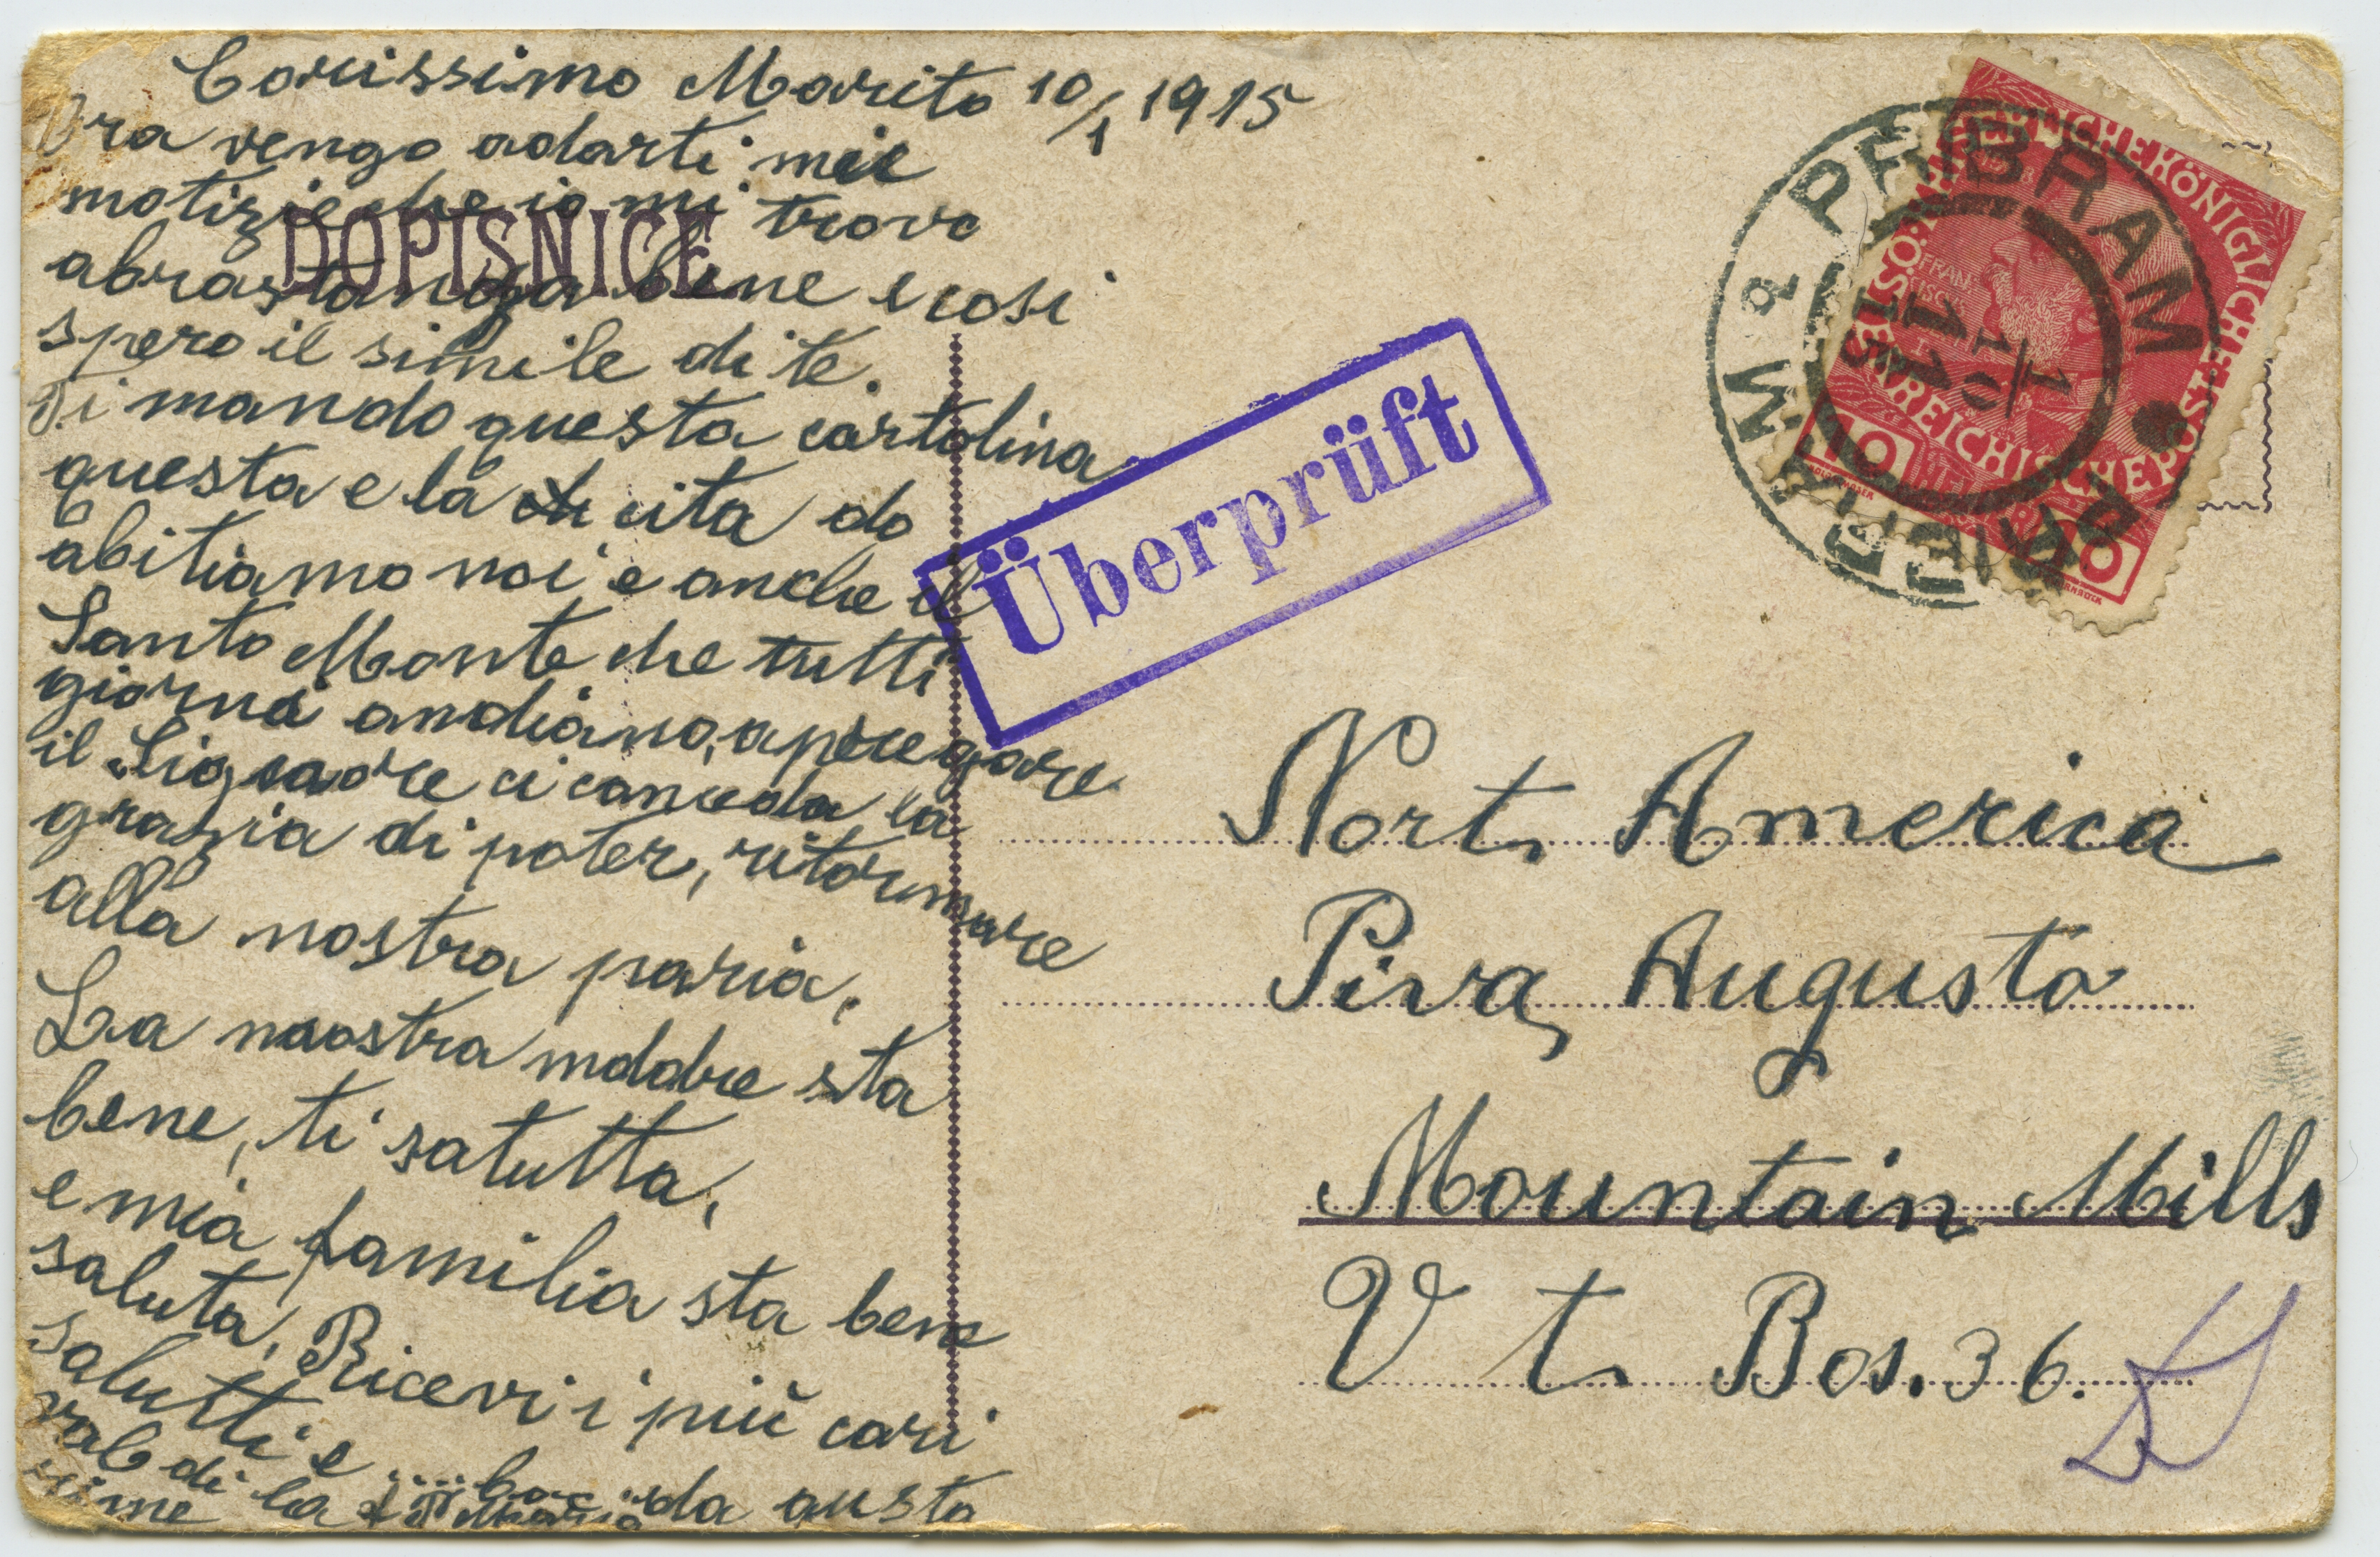 Carissimo Marito 10/1 1915
Ora vengo adarti mie
notizie che io mi trovo
abrastanza bene e cosi
spero il simile di te.
Ti mando questa cartolina
questa e la cita do
abitiamo noi e anche il
Santo Monte che tutti
giorni andiano, a pregare
il Signore ci conceda la
grazia di poter, ritornare
alla nostra paria,
La nostra madre sta
bene, ti satutta,
e mia familia sta bene
saluta, Ricevi i più cari
salutti e
da austa
di la
DOPISNICE
Überprüft
PŘIBRAM
10/1
15
KAISERLICHE KÖNIGLICHE ÖSTERREICHISCHE POST
10
10
Nort America
Piva Augusto
Mountain Mills
V t Bos. 36.